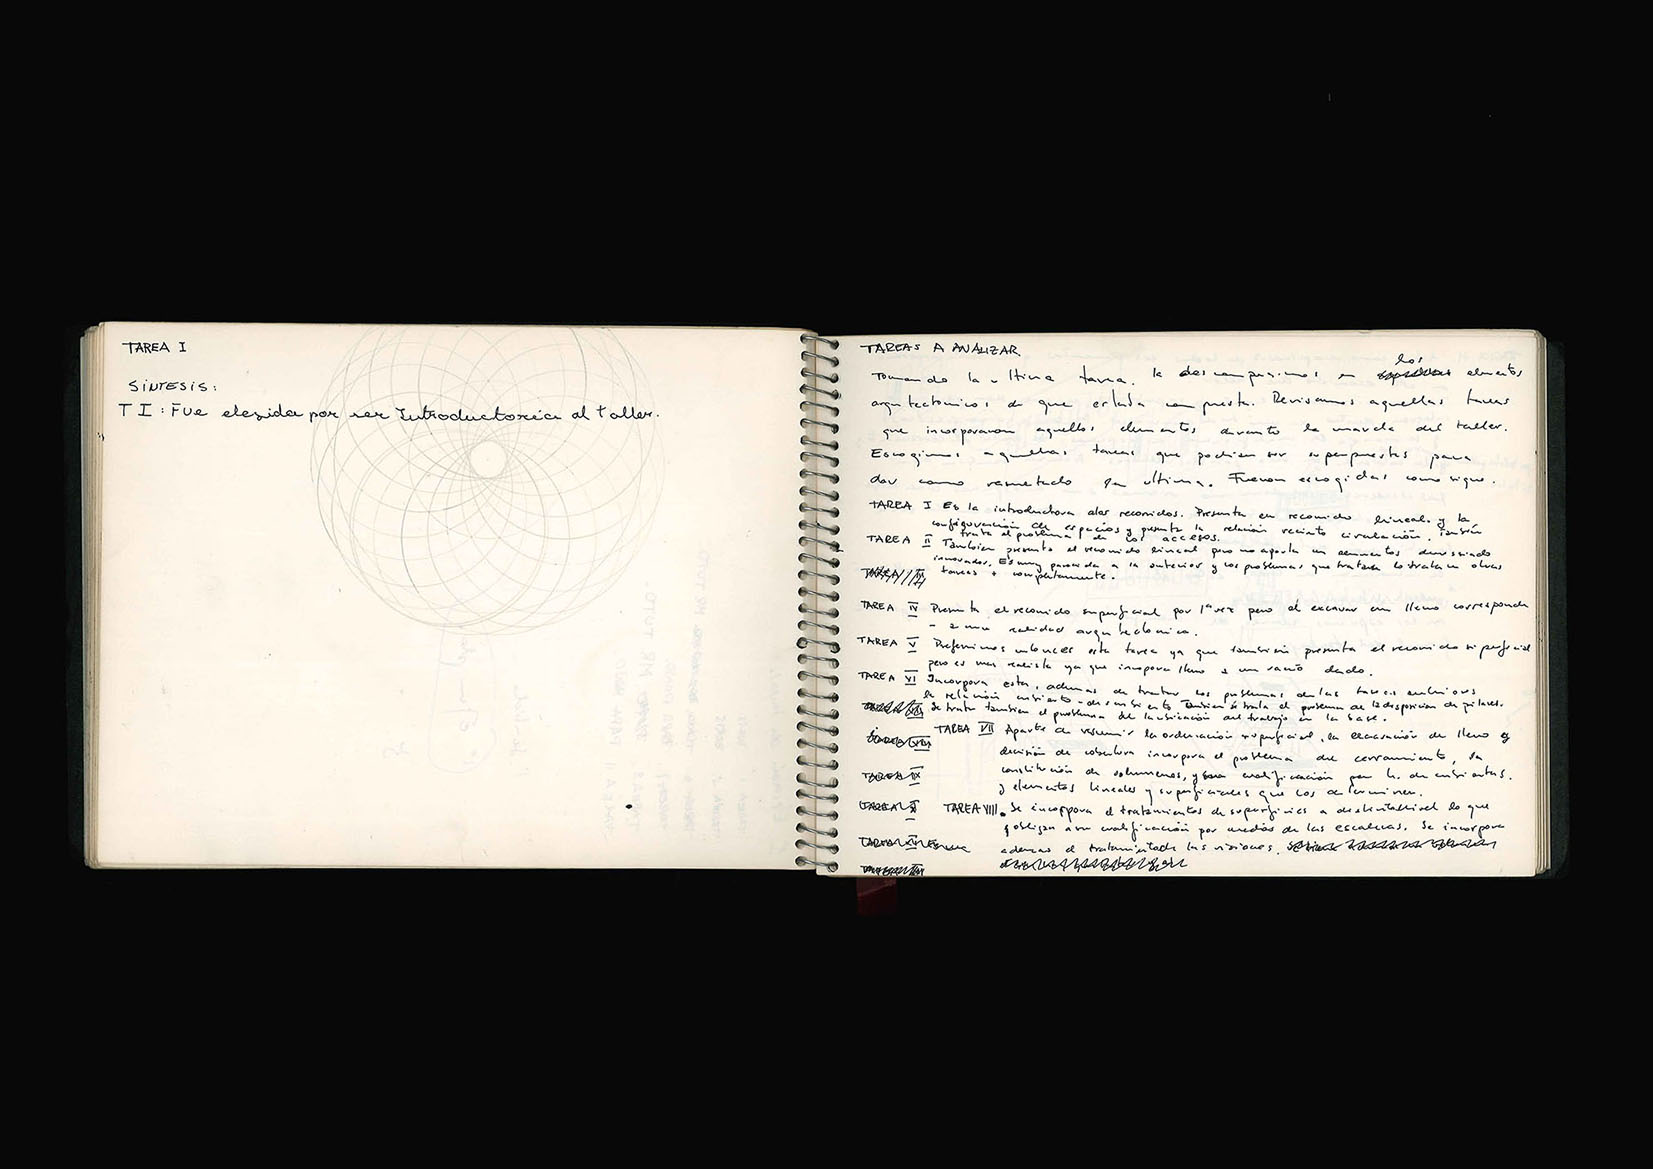 TAREA I
SINTESIS:
T I: Fue elegida por ser Introductoria al taller.
TAREAS A ANALIZAR.
los
Tomando la ultima tarea. la descompusimos en elementos
arquitectonicos de que estaba compuesta. Revisamos aquellas tareas
que incorporaron aquellos elementos durante la marcha del taller.
Escogimos aquellas tareas que podian ser superpuestas para
dar como resultado la ultima. Fueron escogidas como sigue.
TAREA I Es la introductora a los recorridos. Presenta en recorrido lineal. y la
configuración de espacios y presenta la relación recinto circulación. También
trata el problema de los accesos.
TAREA II También presenta el recorrido lineal pero no aporta un elementos demasiado
innovador. Es muy parecida a la anterior y los problemas que tratara lo tratan otras
tareas + completamente.
TAREA IV Presenta el recorrido superficial por 1ª vez pero el excavar un lleno corresponde
a una realidad arquitectonica.
TAREA V Preferimos entonces esta tarea ya que también presenta el recorrido superficial
pero es mas realista ya que incorpora lleno a un vacio dado.
TAREA VI Incorpora esta, ademas de tratar los problemas de las tareas anteriores
la relación También trata el problema de la disposición de pilares.
Se trata tambien el problema de la ubicación del trabajo en la base.
TAREA VII Aparte de resumir la ordenación superficial, la excavación de lleno y
decisión de cobertura incorpora el problema del cerramiento, la
constitución de volumenes, y su cualificación por
y elementos lineales y superficiales que los determinen.
TAREA VIII. Se incorpora el tratamientos de superficies a destinto nivel lo que
obligan a su cualificación por medios de las escaleras. Se incorpora
ademas el tratamiento de las visiones.